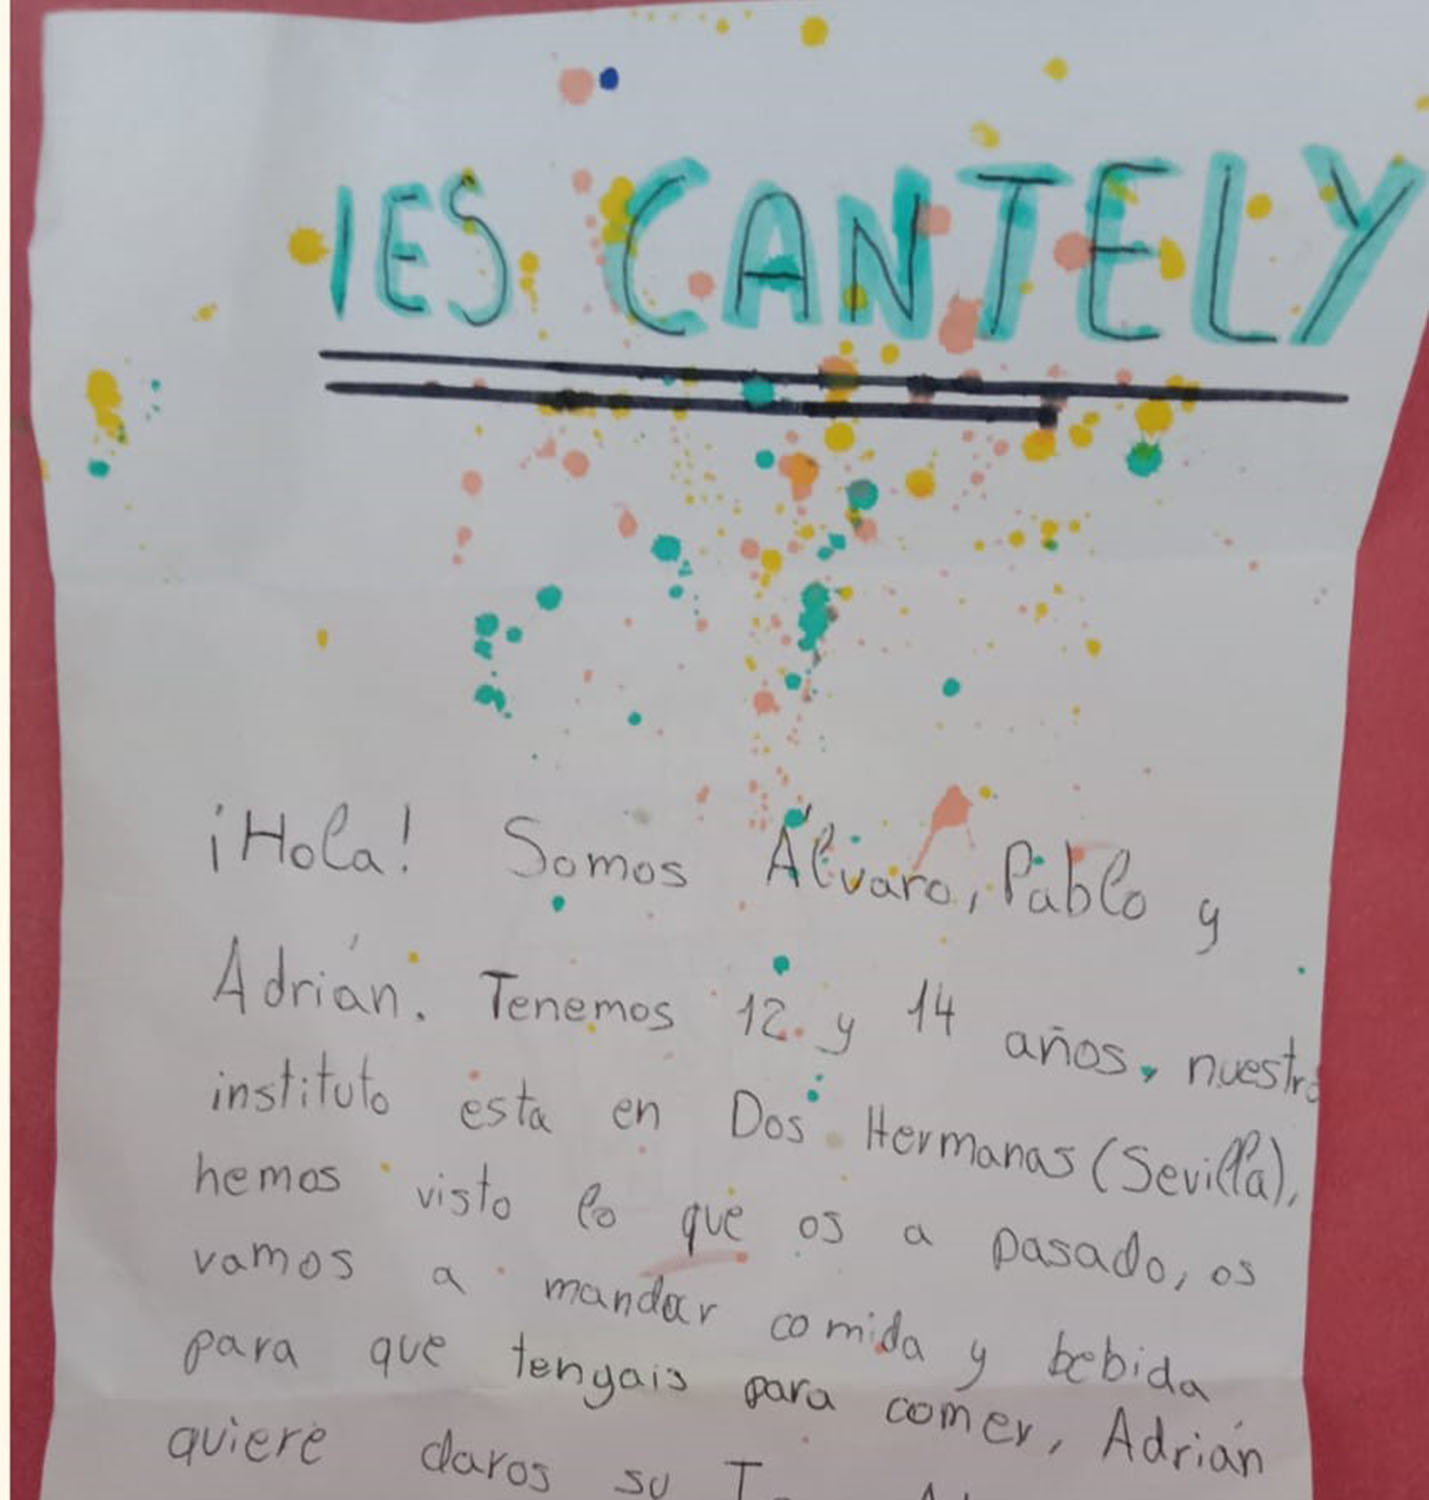 IES CANTELY
¡Hola! Somos Álvaro, Pablo y
Adrián. Tenemos 12 y 14 años, nuestro
instituto esta en Dos Hermanas (Sevilla),
hemos visto lo que os a pasado, os
vamos a mandar comida y bebida
para que tengais para comer, Adrián
quiere daros su